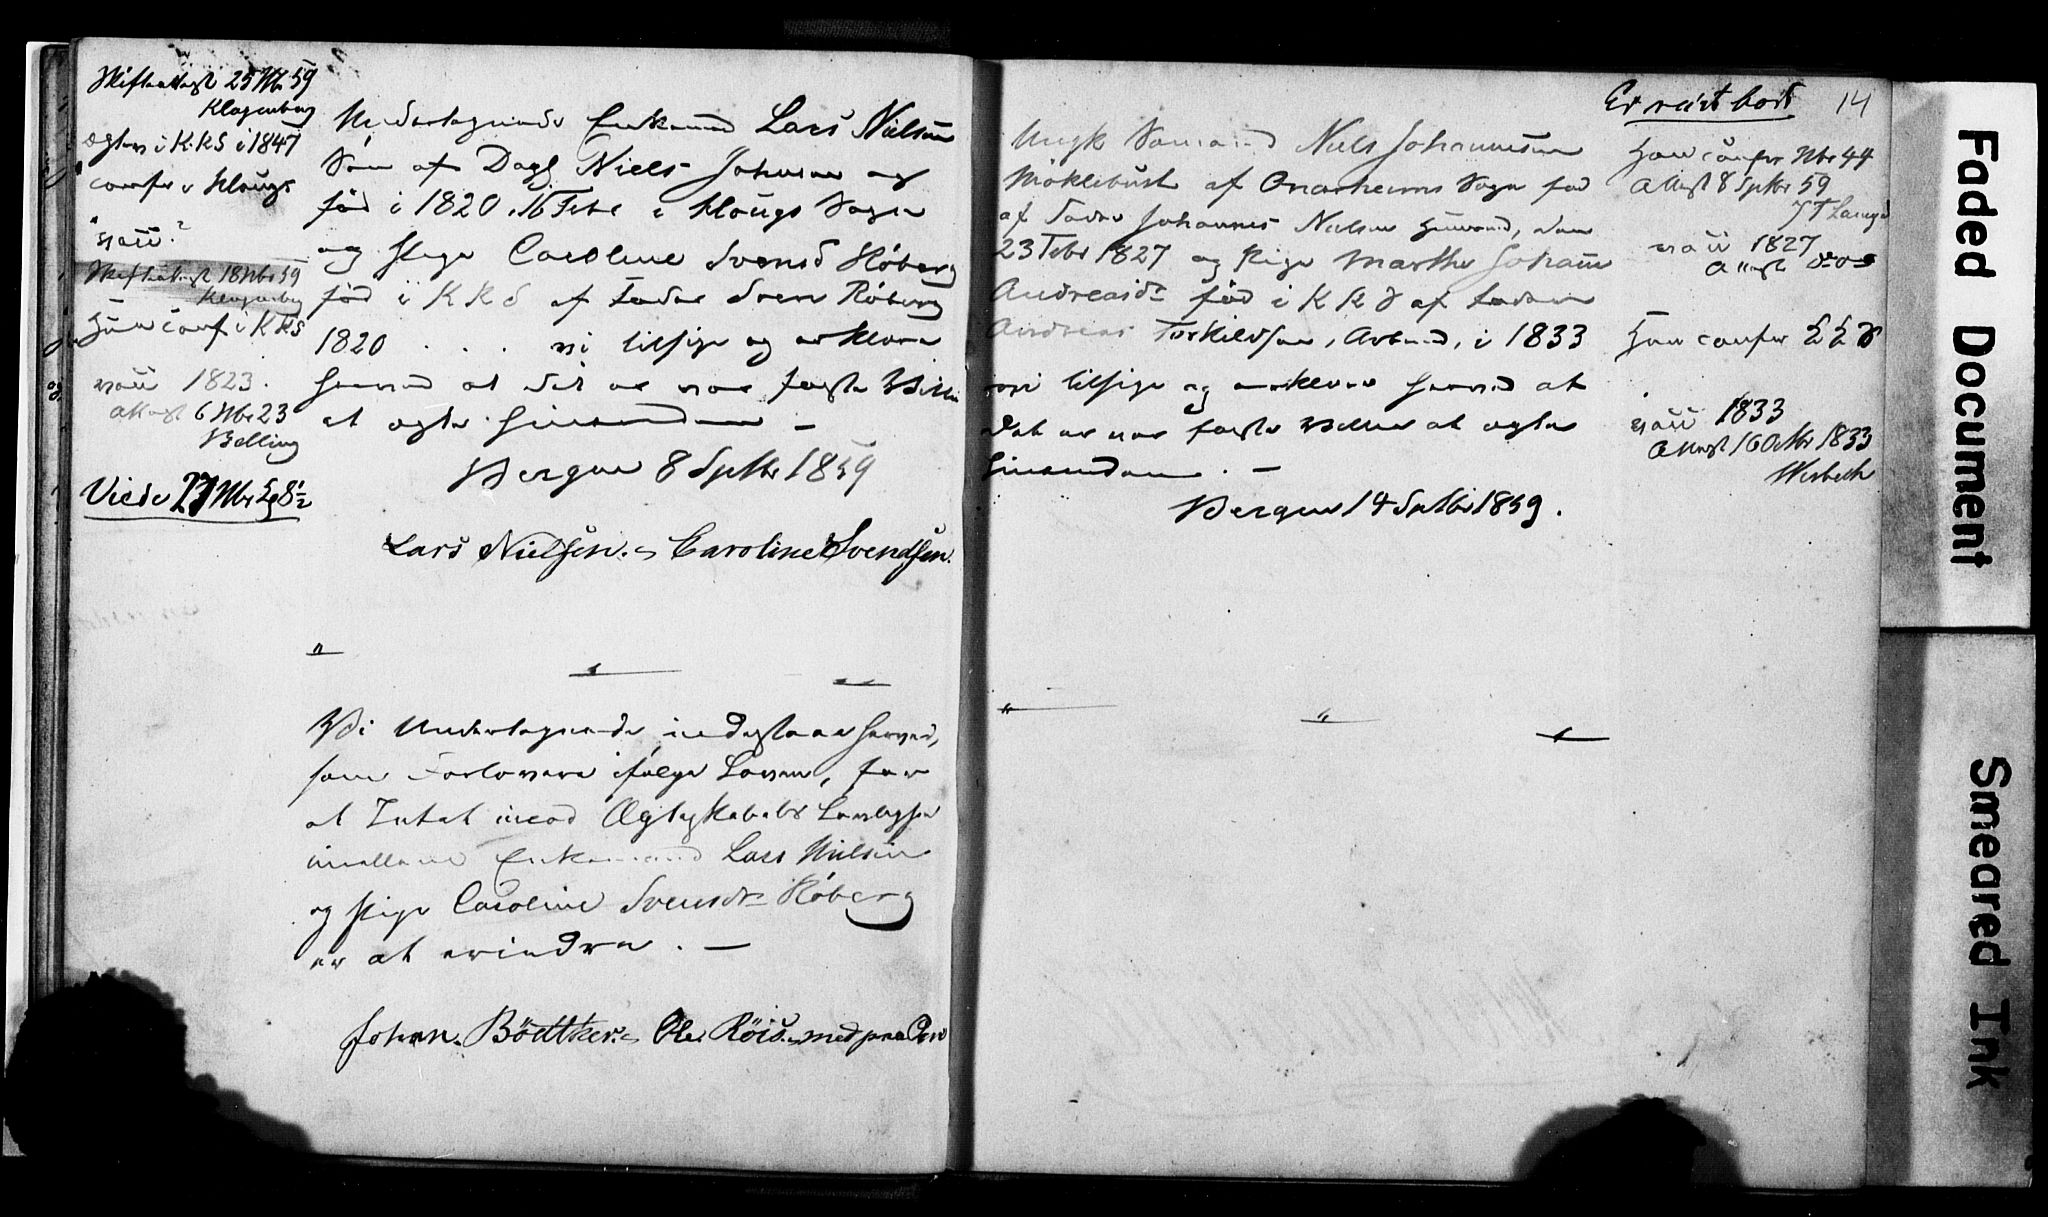 Skifteattest 25 Nbr 59
Klagenberg
ægtev i K.KS i 1847
confr i Haugs
" vacc ?
Skifteattest 18 Nbr 59
Klagenberg
Hun conf i KKS
vacc 1823.
Attest 6 Nbr 23
Belling
Viede 27 Nbr
Undertegnede Enkemand Lars Nielsen
Søn af Dagl Niels Johnsen og
fød i 1820 16 Febr i Haugs Sogn
og Pige Caroline Svensd Høberg
fød i KKS af Fader Sven Høberg
1820 . . . vi tilsige og erklære
herved at det er vor faste Villie
at ægte hinanden –
Bergen 8 Sptbr 1859
Lars Nielsen. Caroline Svendsen.
Vi Undertegnede indestaae herved,
som Forlovere ifølge Loven, for
at Intet imod Ægteskabets Lovlighed
imellem Enkemand Lars Nielsen
og Pige Caroline Svensdr Høberg
er at erindre . —
Johan. Bödtker. Ole Röis. med paa Pen
Er reist bort
14
Ungk Sømand Niels Johannesen
Møklebust af Onarheims Sogn fød
af Fader Johannes Nielsen Huusmd, den
23 Febr 1827 og Pige Marthe Johanne
Andreasdr fød i KKS af Faderen
Andreas Torkildsen, Arbmd, i 1833
vi tilsige og erklærer herved at
det er vor faste Villie at ægte
hinanden . —
Bergen 14 Sptbr 1859.
Han confr Nbr 44
Attest 8 Sptbr 59
vacc 1827
Attest
Hun confr
vacc 1833
Attest 16 Oktbr 1833
Wesbech
Faded Document
Smeared Ink